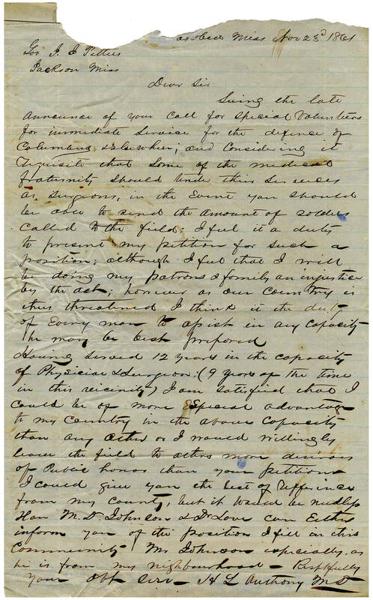 Miss Nov 23d 1861
Gov J. J. Pettus
Jackson Miss
Dear Sir
Seeing the late
announce of your call for Special Volunteers
for immediate Service for the defence of
Columbus; and Considering it
requisite that Some of the medical
fraternity should their Services
as Surgeons, in the Event you Should
be able to send the amount of
called to the field; I feel it a duty
to present my petition for Such a
position; although I feel that I will
be doing my patrons & family an injustice
by the act; however as our Country is
thus threatened I think it the duty
of Every man to assist in any Capacity
he may be best prepared
Having Served 12 years in the capacity
of Physician & Surgeon (9 years of the time
in this vicinity) I am Satisfied that I
could be of more Especial advantage
to my Country in the above Capacity
than any other or I would willingly
leave the field to others more desirous
of Public honor than your Petitioner
I could give you the best of Refference
from my County, but it would be needless
Hon M. D. Johnson & Dr Love can Either
inform you of the position I fill in this
Community Mr Johnson especially as
he is from my neighbourhood – Respectfully
your Obt Serv – H L Anthony M D